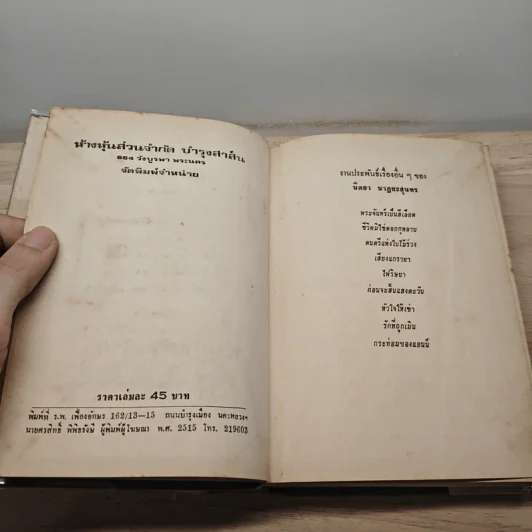 ห้างหุ้นส่วนจำกัด บำรุงสาส์น
864 วังบูรพา พระนคร
จัดพิมพ์จำหน่าย
ราคาเล่มละ 45 บาท
พิมพ์ที่ ร.พ. เฟื่องอักษร 162/13—15 ถนนบำรุงเมือง นครหลวงฯ
นายศรสิทธิ์ พิพิธรังษี ผู้พิมพ์ผู้โฆษณา พ.ศ. 2515 โทร. 219603
งานประพันธ์เรื่องอื่น ๆ ของ
นิดสา นาฏยะสุนทร
พระจันทร์เป็นสีเลือด
ชีวิตมิใช่ดอกกุหลาบ
ดนตรีแห่งใบไม้ร่วง
เสียงแกรายา
ไฟริษยา
ก่อนจะสิ้นแสงตะวัน
หัวใจให้เช่า
รักที่ถูกเมิน
กระท่อมของแอนน์